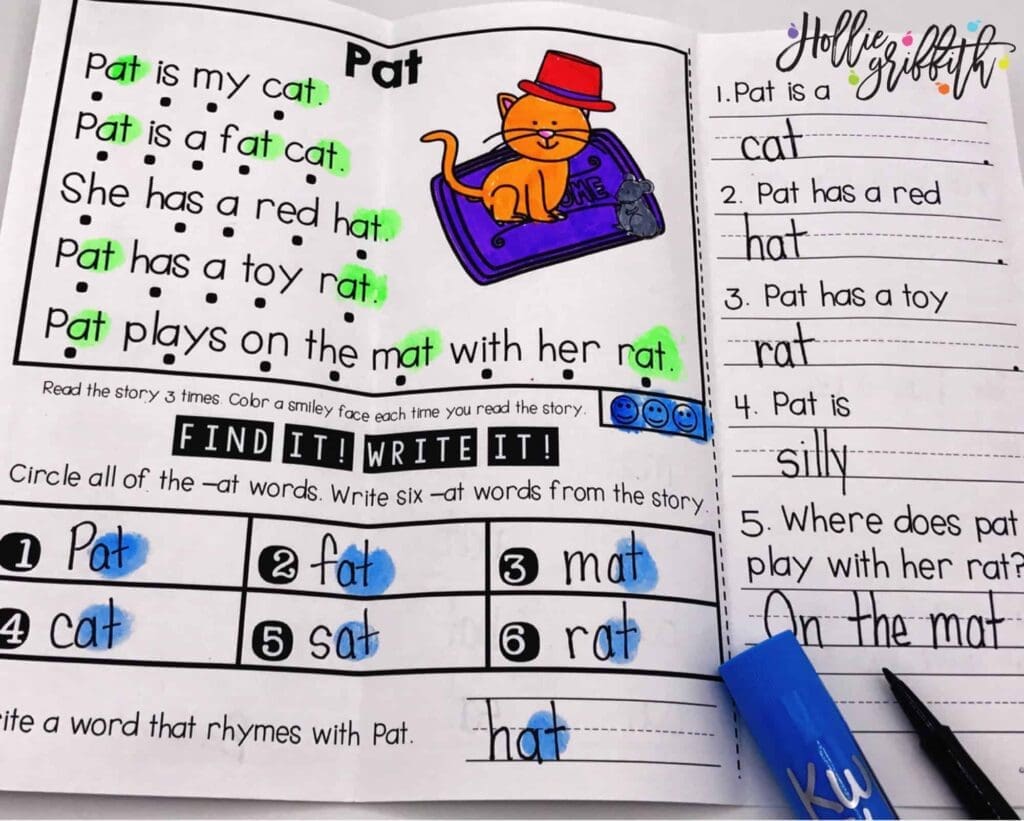 Hollie
griffith
Pat
Pat is my cat.
Pat is a fat cat.
She has a red hat.
Pat has a toy rat.
Pat plays on the mat with her rat.
Read the story 3 times. Color a smiley face each time you read the story.
FIND IT! WRITE IT!
Circle all of the –at words. Write six –at words from the story.
1 Pat
2 fat
3 mat
4 cat
5 sat
6 rat
ite a word that rhymes with Pat.
hat
1. Pat is a
cat.
2. Pat has a red
hat.
3. Pat has a toy
rat.
4. Pat is
silly
5. Where does pat
play with her rat?
On the mat
KW